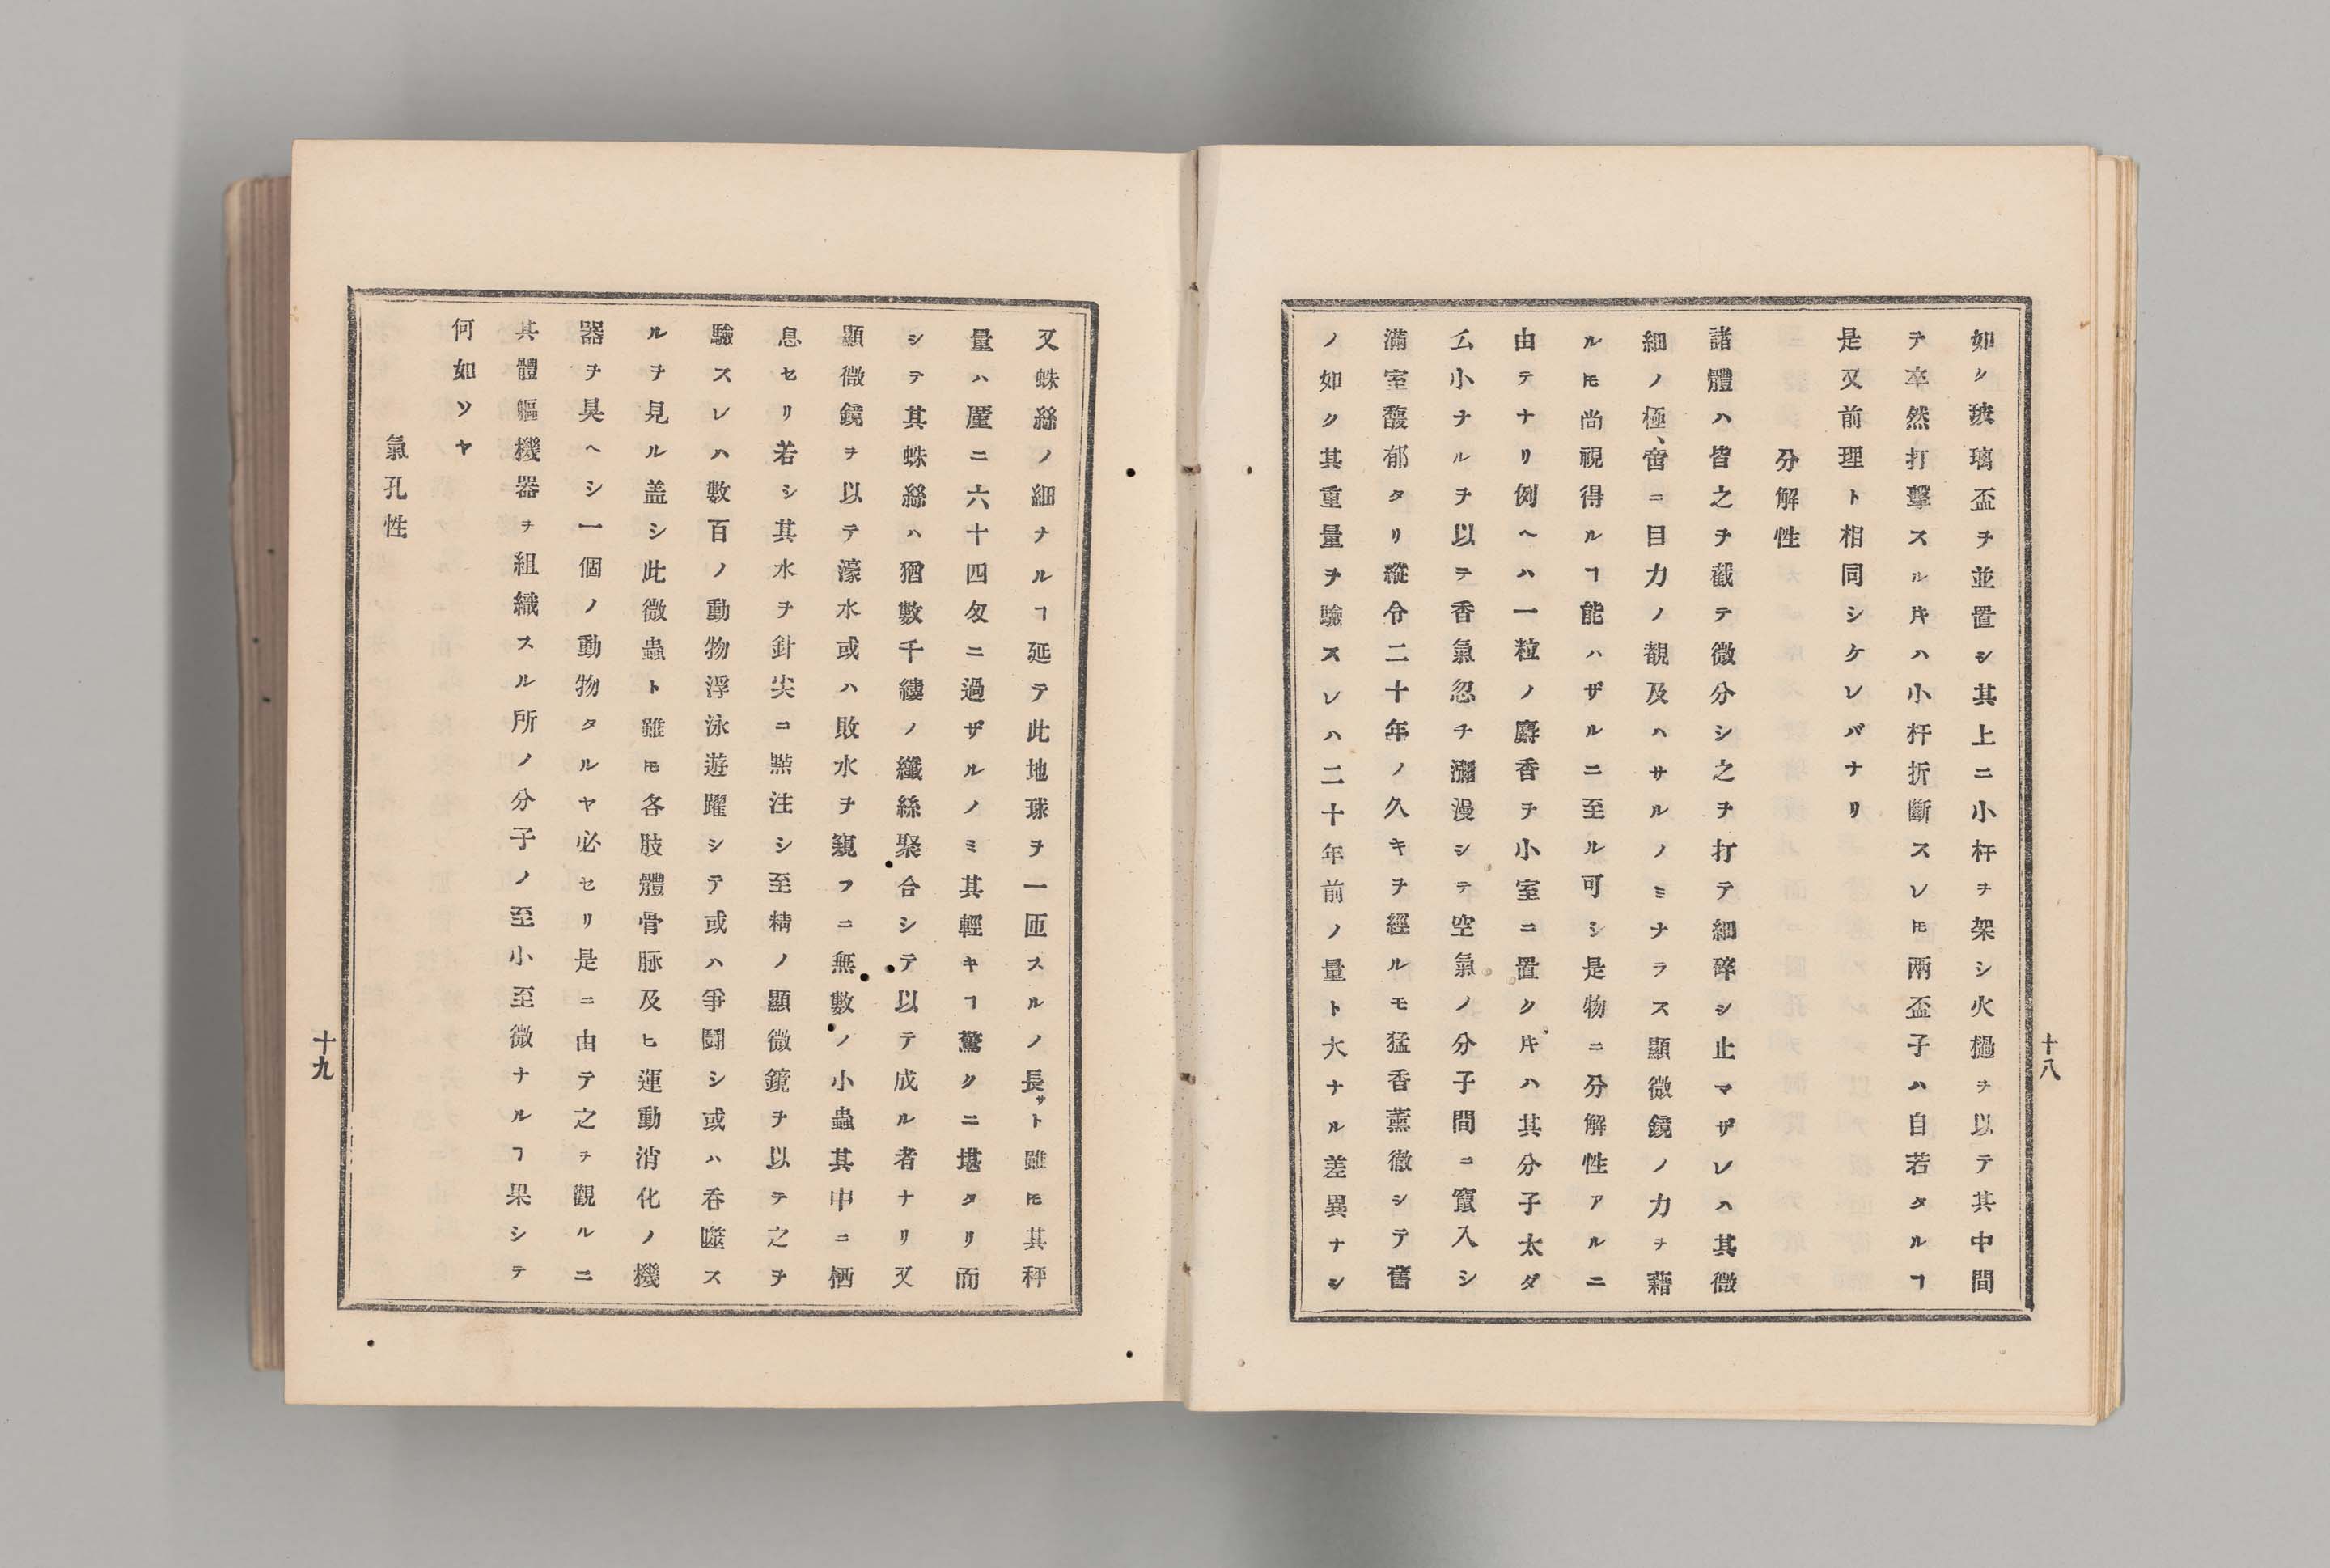 如ク玻璃盃ヲ並置シ其上ニ小杆ヲ架シ火檛ヲ以テ其中間
テ卒然打擊スルㇳキハ小杆折斷スレㇳモ兩盃子ハ自若タルヿ
是又前理ト相同シケレバナリ
分解性
諸體ハ皆之ヲ截テ微分シ之ヲ打テ細碎シ止マザレハ其微
細ノ極、啻ニ目力ノ覩及ハサルノミナラス顯微鏡ノ力ヲ藉
ルㇳモ尚視得ルヿ能ハザルニ至ル可シ是物ニ分解性アルニ
由テナリ例ヘハ一粒ノ麝香ヲ小室ニ置クㇳキハ其分子太ダ
么小ナルヲ以テ香氣忽チ瀰漫シテ空氣ノ分子間ニ竄入シ
滿室馥郁タリ縱令二十年ノ久キヲ經ルモ猛香薰徹シテ舊
ノ如ク其重量ヲ驗スレハ二十年前ノ量ト大ナル差異ナシ
十八
又蛛絲ノ細ナルヿ延テ此地球ヲ一匝スルノ長サト雖ㇳモ其秤
量ハ厪ニ六十四匁ニ過ザルノミ其輕キヿ驚クニ堪タリ而
シテ其蛛絲ハ猶數千縷ノ纖絲聚合シテ以テ成ル者ナリ又
顯微鏡ヲ以テ濠水或ハ敗水ヲ窺フニ無數ノ小蟲其中ニ栖
息セリ若シ其水ヲ針尖ニ點注シ至精ノ顯微鏡ヲ以テ之ヲ
驗スレハ數百ノ動物浮泳遊躍シテ或ハ爭鬪シ或ハ呑噬ス
ルヲ見ル盖シ此微蟲ト雖ㇳモ各肢體骨脉及ヒ運動消化ノ機
器ヲ具ヘシ一個ノ動物タルヤ必セリ是ニ由テ之ヲ觀ルニ
其體軀機器ヲ組織スル所ノ分子ノ至小至微ナルヿ果シテ
何如ソヤ
氣孔性
十九